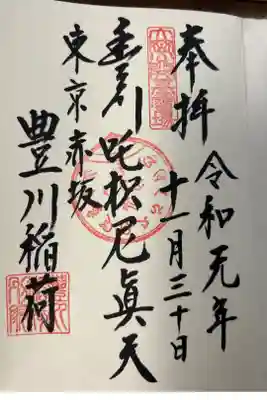 奉拝
令和元年
十一月三十日
豊川吒枳尼眞天
東京赤坂
豊川稲荷